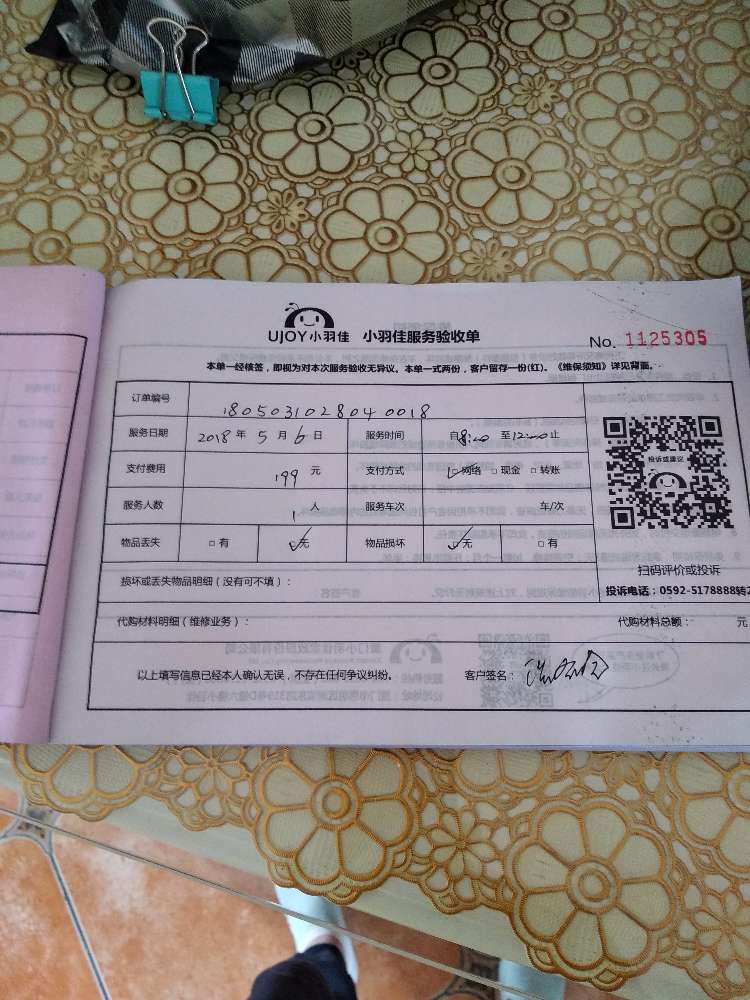 UJOY小羽佳 小羽佳服务验收单
No. 1125305
本单一经核签，即视为对本次服务验收无异议。本单一式两份，客户留存一份(红)。《维保须知》详见背面。
订单编号 180503102804 0018
服务日期 2018年5月6日 服务时间 自8:00至12:00止
支付费用 199元 支付方式 ☑网络 □现金 □转账
服务人数 1人 服务车次 车/次
物品丢失 □有 ☑无 物品损坏 ☑无 □有
投诉或建议
扫码评价或投诉
投诉电话：0592-5178888转2
损坏或丢失物品明细（没有可不填）：
代购材料明细（维修业务）： 代购材料总额： 元
以上填写信息已经本人确认无误，不存在任何争议纠纷。 客户签名：